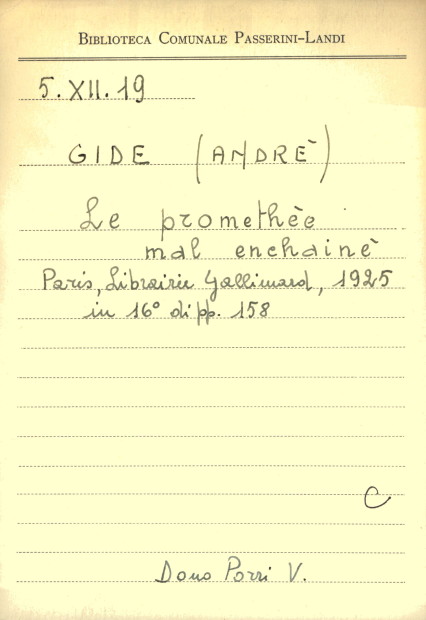 BIBLIOTECA COMUNALE PASSERINI-LANDI
5.XII.19
GIDE (ANDRÈ)
Le promethèe
mal enchainè
Paris, Librairie Gallimard, 1925
in 16° di pp. 158
C
Dono Porri V.